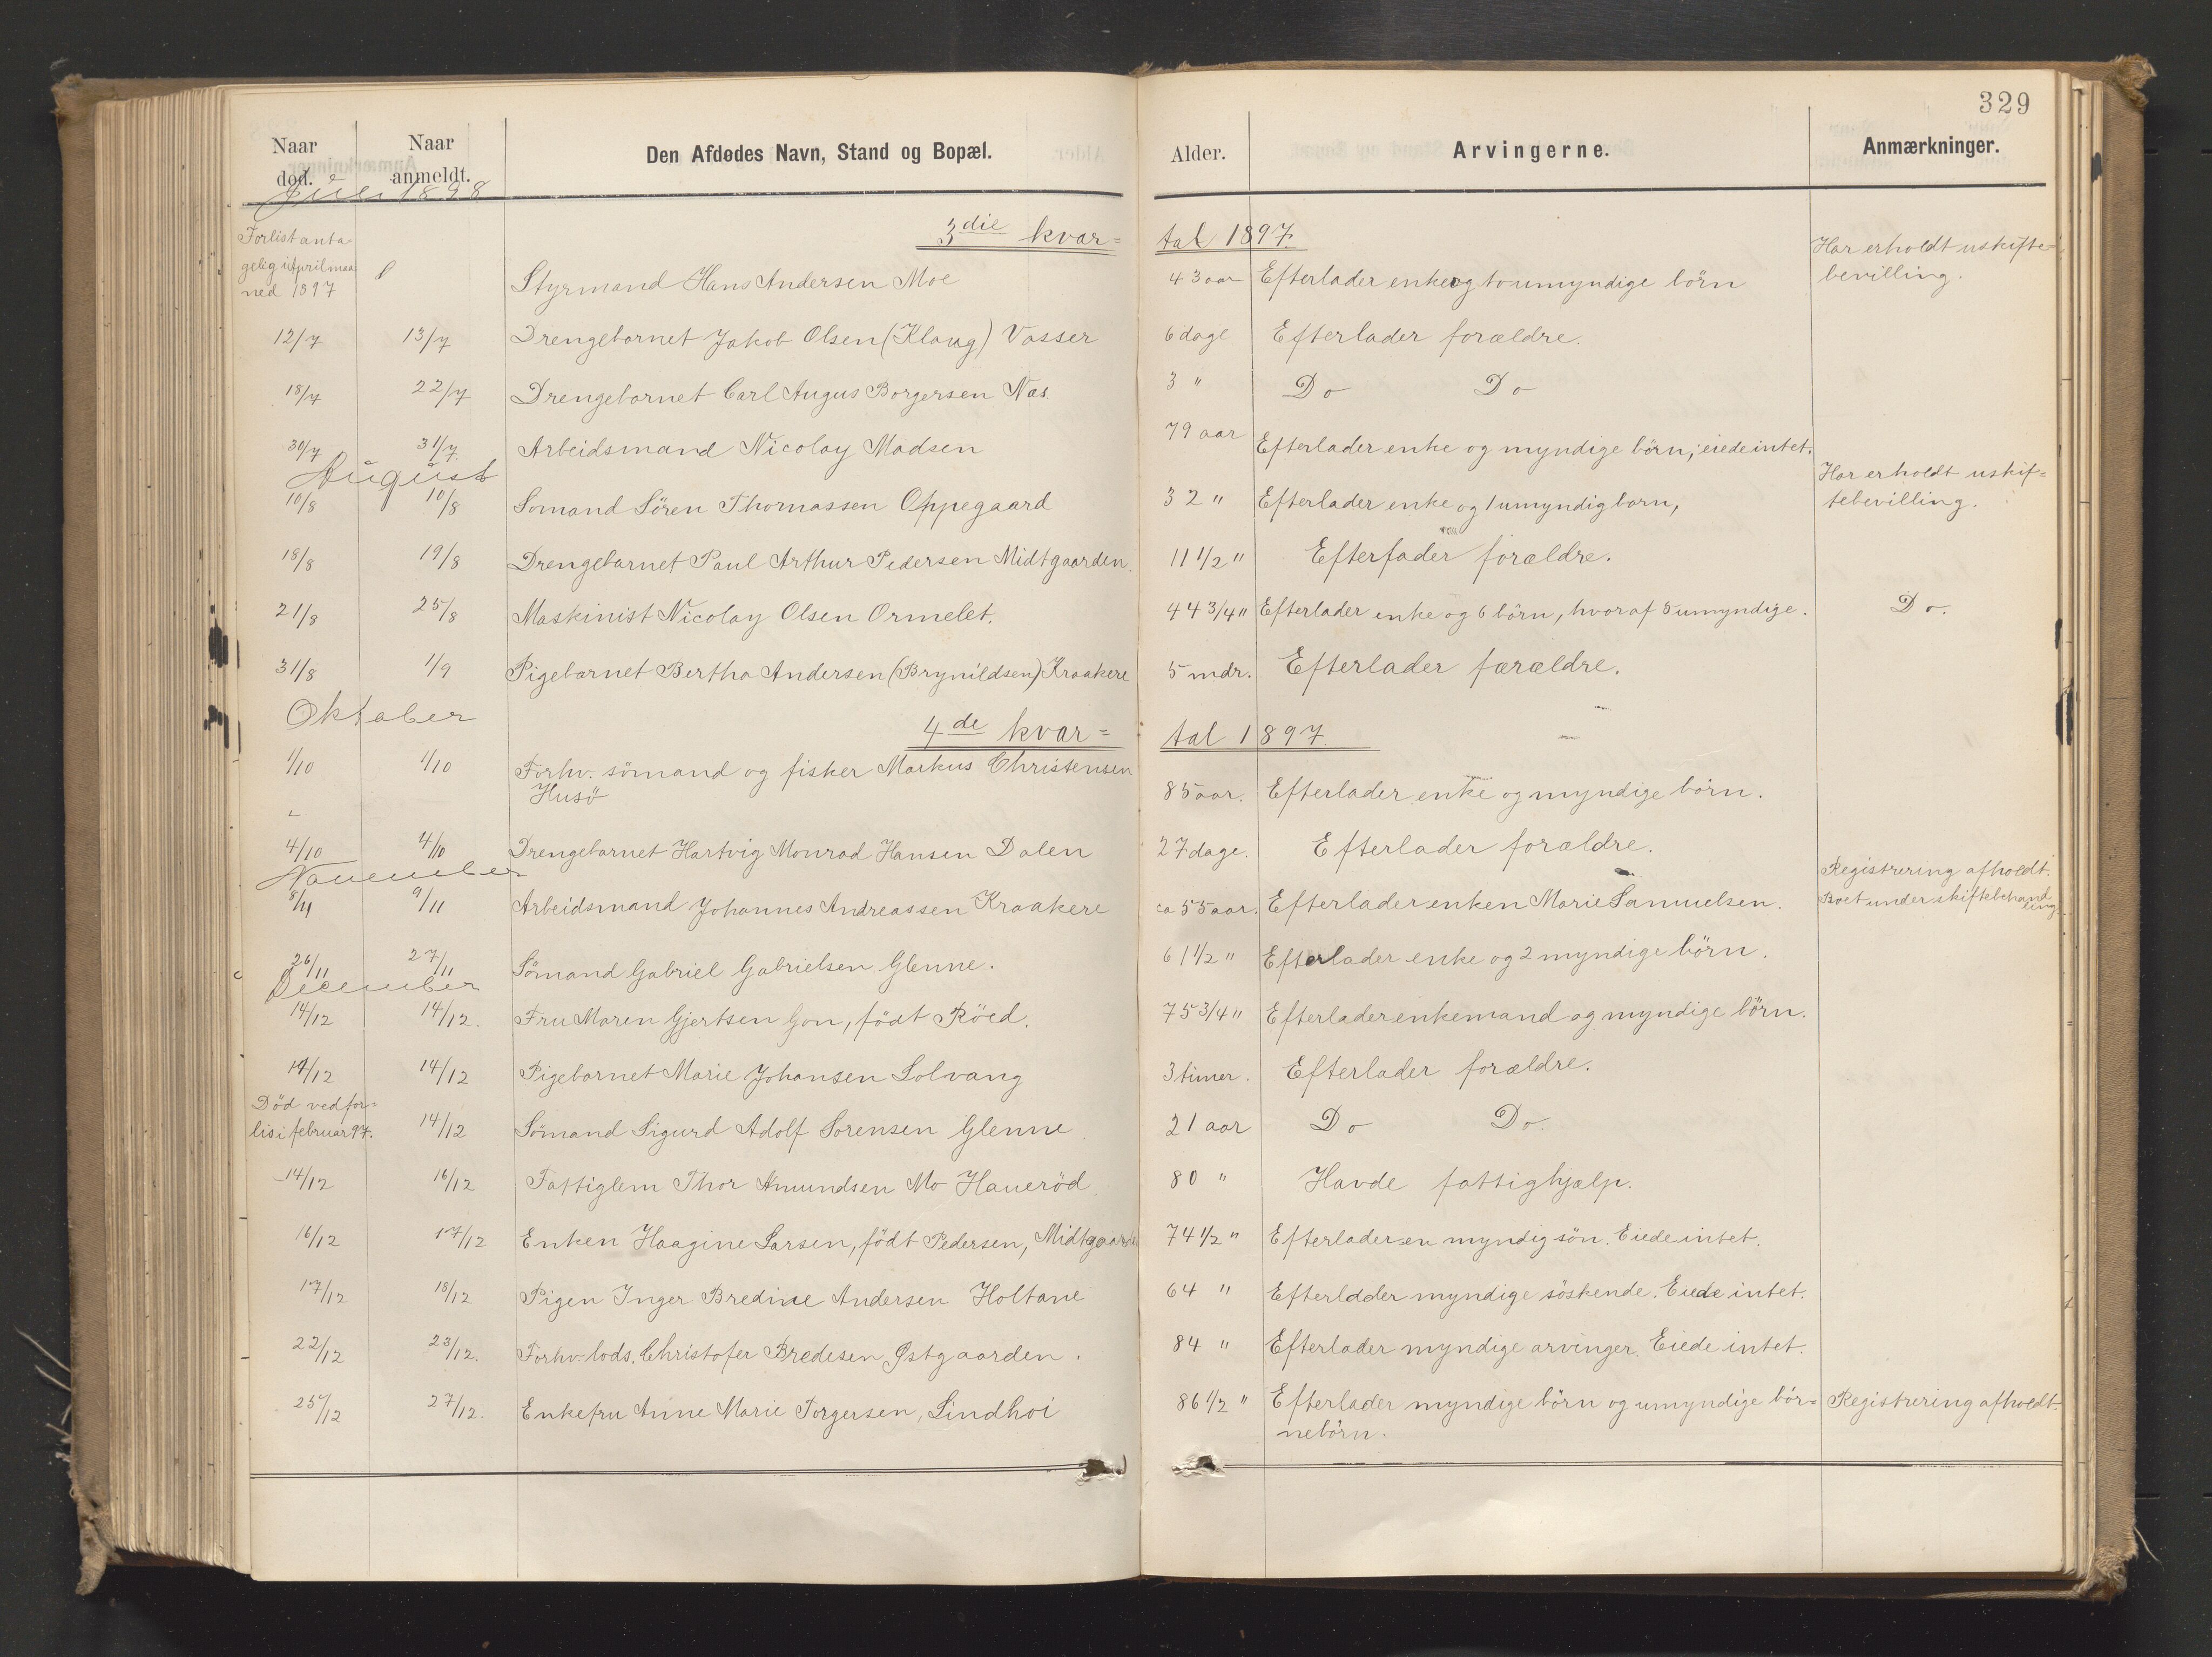 329
Naar død. Naar anmeldt. Den Afdødes Navn, Stand og Bopæl. Alder. Arvingerne. Anmærkninger.
Juli 1898
3die kvar= tal 1897.
Forlist anta= gelig i April maa ned 1897 Styrmand Hans Andersen Moe 43 aar Efterlader enke og to umyndige börn Har erholdt uskifte= bevilling.
12/7 13/7 Drengebarnet Jakob Olsen (Klaug) Vasser 6 dage Efterlader forældre.
18/7 22/7 Drengebarnet Carl Augus Borgersen Næs. 3 " Do Do
30/7 31/7 Arbeidsmand Nicolay Madsen 79 aar Efterlader enke og myndige börn; eiede intet.
August
10/8 10/8 Somand Sören Thomassen Oppegaard 32 " Efterlader enke og 1 umyndig barn, Har erholdt uskif= tebevilling.
18/8 19/8 Drengebarnet Paul Arthur Pedersen Midtgaarden. 11 1/2 " Efterlader forældre.
21/8 25/8 Maskinist Nicolay Olsen Ormelet. 44 3/4 " Efterlader enke og 6 börn, hvoraf 5 umyndige. Do.
31/8 1/9 Pigebarnet Bertha Andersen (Brynildsen) Kraakere 5 mdr. Efterlader forældre.
Oktober
4de kvar= tal 1897.
1/10 1/10 Forhv. sömand og fisker Markus Christensen
Husö 85 aar. Efterlader enke og myndige börn.
4/10 4/10 Drengebarnet Hartvig Monrad Hansen Dalen 27 dage. Efterlader forældre.
November
8/11 9/11 Arbeidsmand Johannes Andreassen Kraakere ca 55 aar. Efterlader enken Marie Samuelsen. Registrering afholdt. Boet under skiftebehand ling.
26/11 27/11 Sömand Gabriel Gabrielsen Glenne. 61 1/2 " Efterlader enke og 2 myndige börn.
December
14/12 14/12. Fru Maren Gjertsen Gon, födt Röed. 75 3/4 " Efterlader enkemand og myndige börn.
14/12 14/12 Pigebarnet Marie Johansen Solvang 3 timer. Efterlader forældre.
Död ved for= lis i februar 97. 14/12 Sömand Sigurd Adolf Sorensen Glenne 21 aar Do Do.
14/12 16/12 Fattiglem Thor Amundsen Mo Haueröd. 80 " Havde fattighjælp.
16/12 17/12 Enken Haagine Larsen, födt Pedersen, Midtgaard 74 1/2 " Efterlader en myndig sön. Eiede intet.
17/12 18/12 Pigen Inger Bredine Andersen Holtane 64 " Efterlader myndige söskende. Eiede intet.
22/12 23/12. Forhv. lods. Christofer Bredesen Østgaarden. 84 " Efterlader myndige arvinger. Eiede intet.
25/12 27/12. Enkefru Anne Marie Torgersen, Lindhoi 86 1/2 " Efterlader myndige börn og umyndige bör= Registrering afholdt.
nebörn.